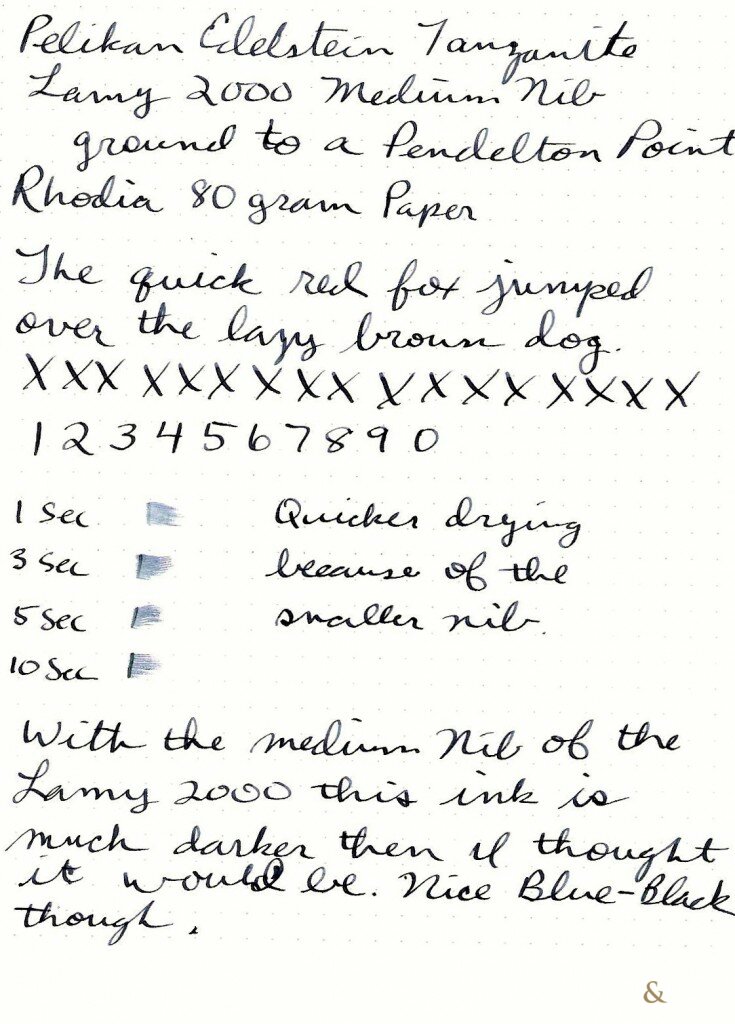 Pelikan Edelstein Tanzanite
Lamy 2000 Medium Nib
ground to a Pendelton Point
Rhodia 80 gram Paper
The quick red fox jumped
over the lazy brown dog.
XXX XXX XXX XXXX XXXX
1 2 3 4 5 6 7 8 9 0
1 Sec Quicker drying
3 Sec because of the
5 Sec smaller nib.
10 Sec
With the medium Nib of the
Lamy 2000 this ink is
much darker then I thought
it would be. Nice Blue-Black
though.
&